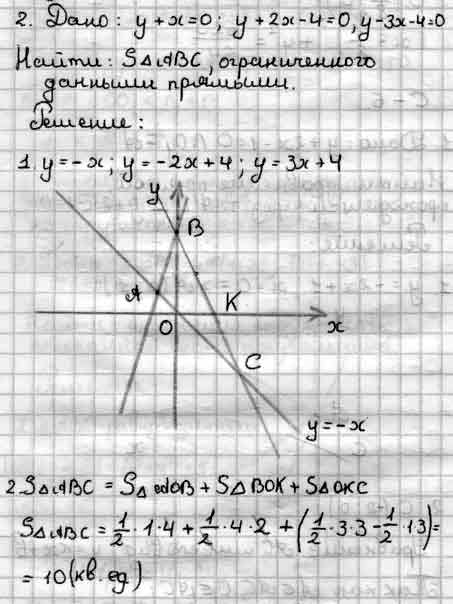 2. Дано: y+x=0; y+2x-4=0, y-3x-4=0
Найти: S△ABC, ограниченного
данными прямыми.
Решение:
1. y=-x; y=-2x+4; y=3x+4
y
B
A
K
O
x
C
y=-x
2. S△ABC = S△AOB + S△BOK + S△OKC
S△ABC = 1/2 · 1·4 + 1/2 · 4·2 + (1/2 · 3·3 - 1/2 · 1·3) =
= 10 (кв. ед)